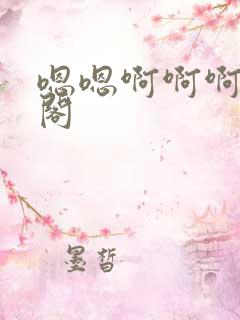 嗯嗯啊啊啊
阁
墨皙